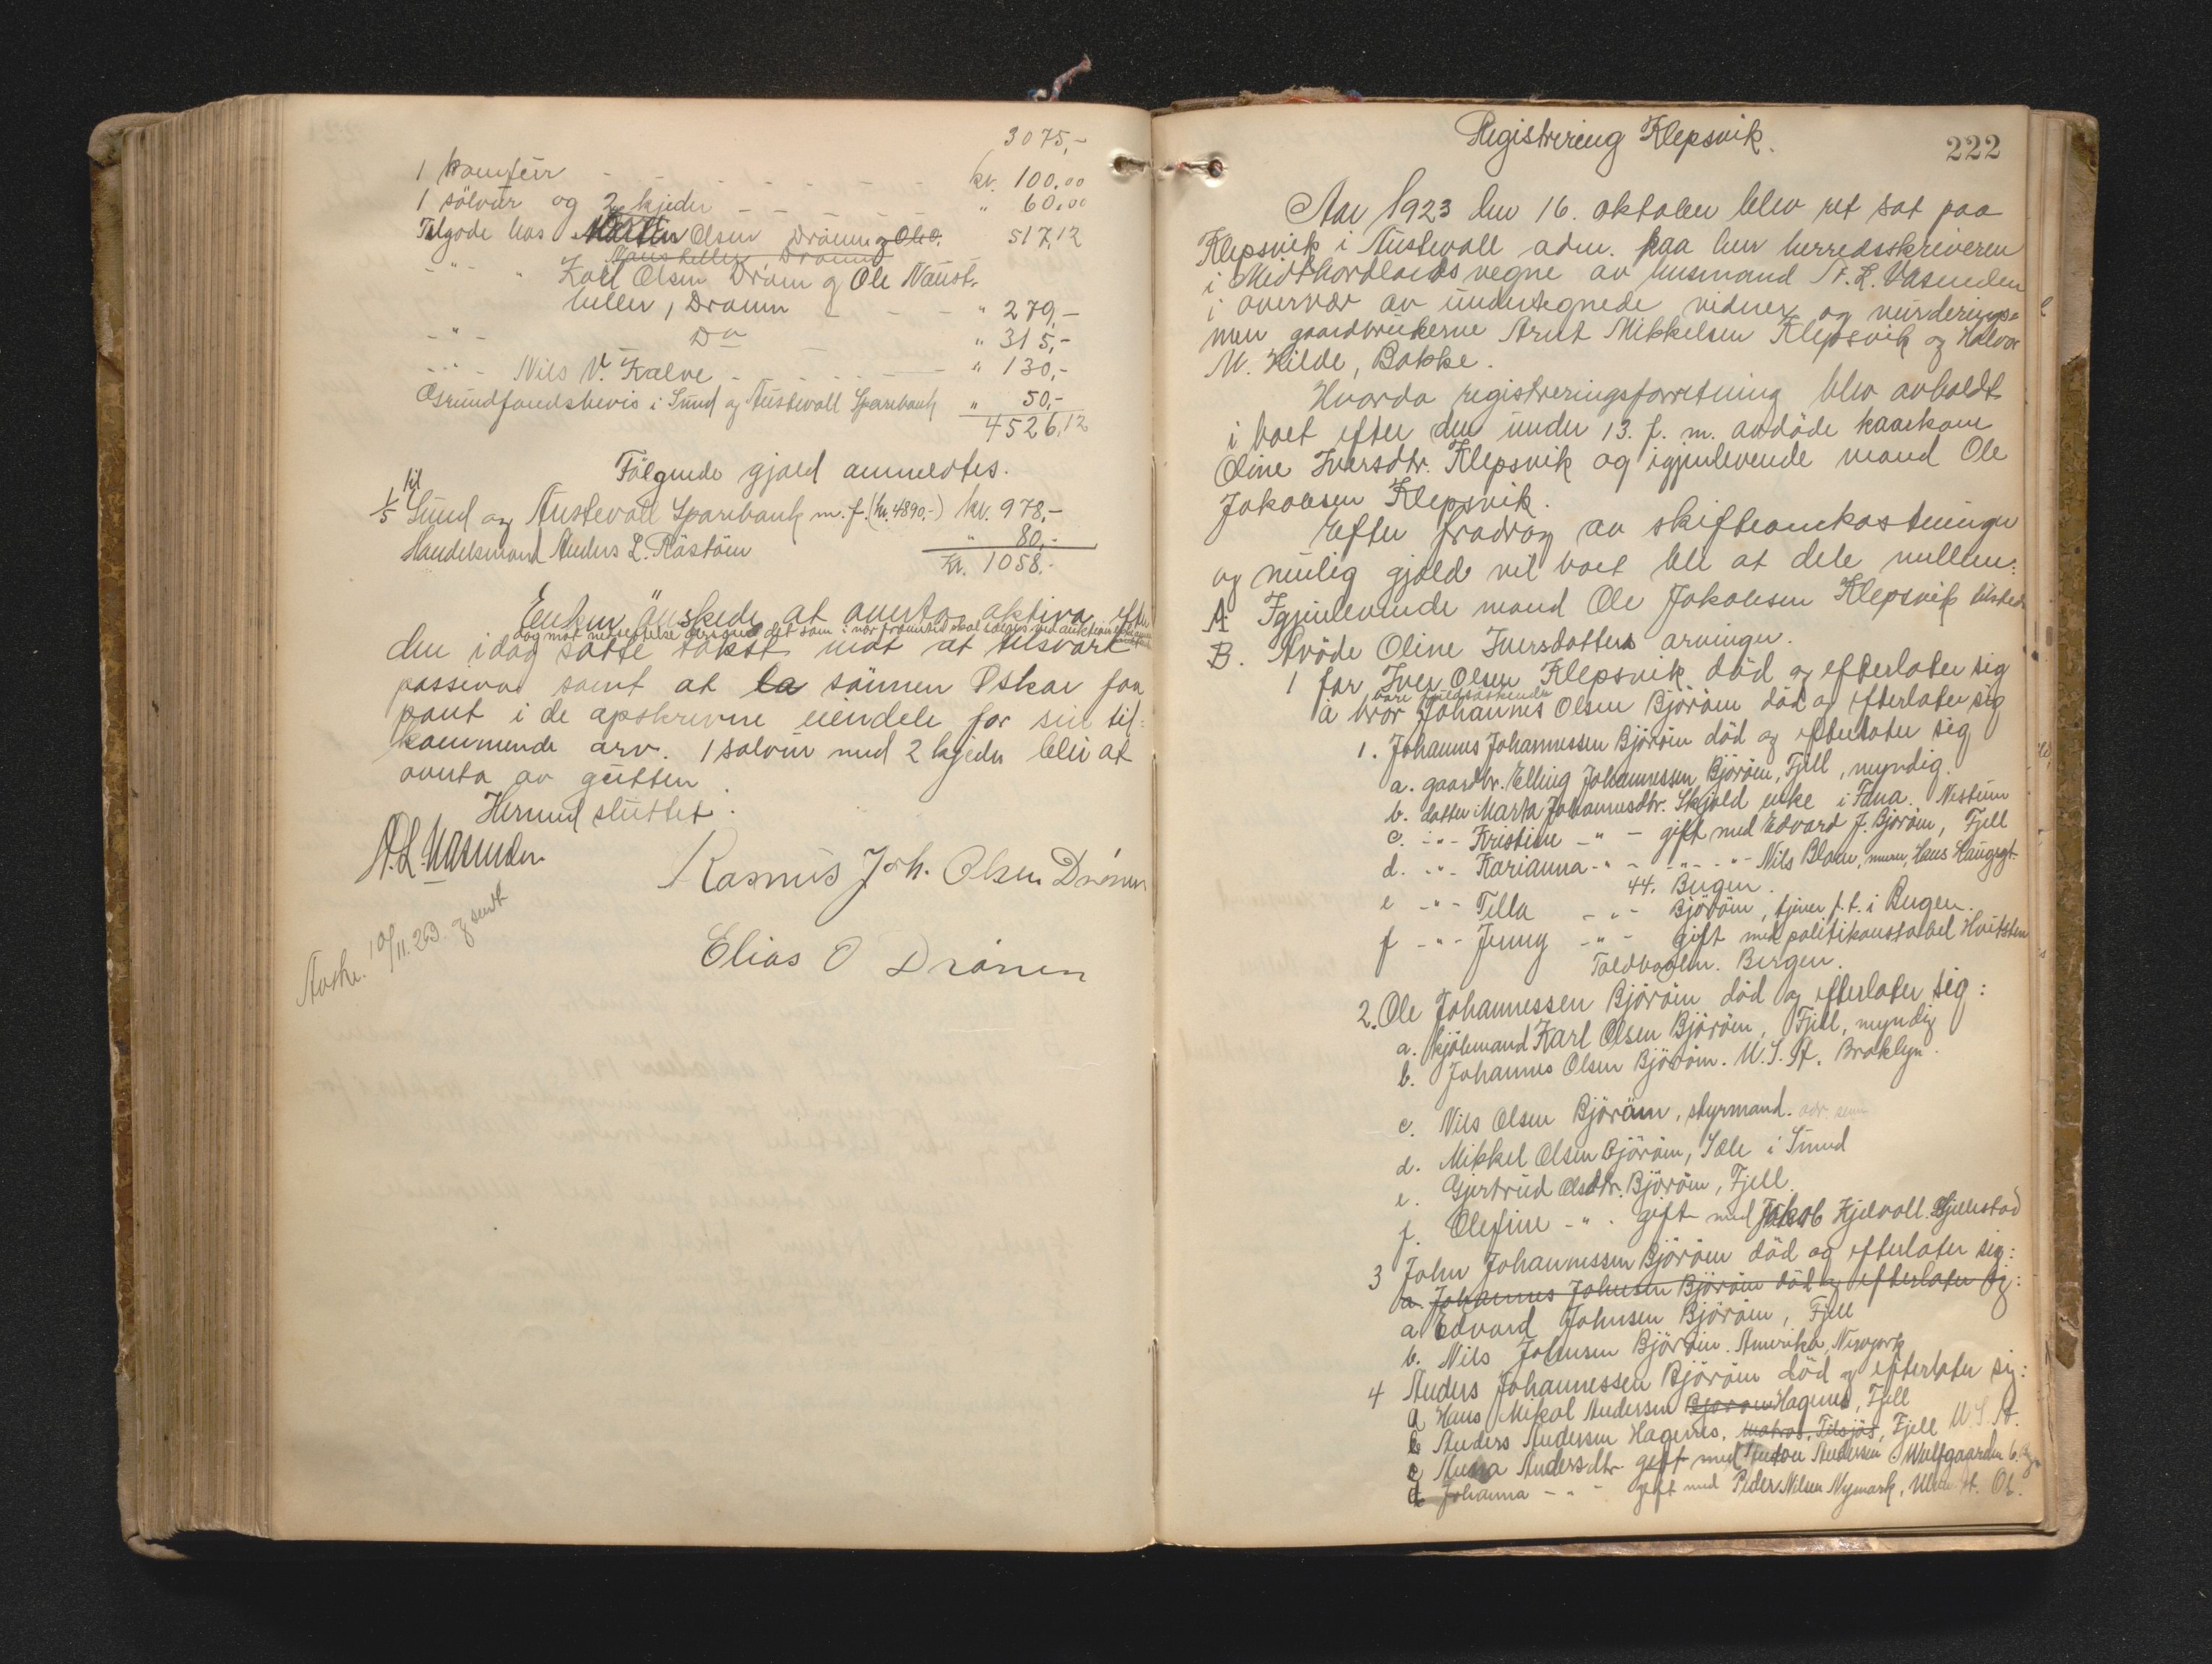 3075,-
1 komfeir - - - - - - - kr. 100.00
1 sölvur og 2 kjeder - - - - " 60.00
Tilgode hos Martin Olsen Drönen og Ole O. 517,12
Nausthellen Drönen
- " - " Karl Olsen Drönen og Ole Naust-
hellen, Drönen - - - " 279,-
- " - Do " 315,-
- " - Nils V. Kalve - - - - " 130,-
Grundfondsbevis i Sund og Austevoll Sparebank " 50,-
4526,12
Følgende gjæld anmeldtes.
1/5 til Sund og Austevoll Sparebank m. f. (kr. 4890,-) kr. 978,-
Handelsmand Anders L. Röstöen " 80,-
Kr. 1058,-
Enken önskede at overta aktiva efter
den idag satte takst mot at tilsvare
passiva samt at la sönnen Oskar faa
pant i de opskrevne eiendele for sin til-
kommende arv. 1 sölvur med 2 kjeder blir at
overta av gutten.
Hermed sluttet.
A. L. Vasenden
Rasmus Joh. Olsen Drönen
Elias O Drönen
Avskr. 10/11.23. og sendt
Registrering Klepsvik.
222
Aar 1923 den 16. oktober blev ret sat paa
Klepsvik i Austevoll adm. paa herr herredsskriveren
i Midthordlands vegne av lensmand A. L. Vasenden
i overvær av undertegnede vidner og vurderings-
men gaardbrukerne Arnt Mikkelsen Klepsvik og Halvor
M. Hilde, Bakke.
Hvorda registreringsforretning blev avholdt
i boet efter den under 13. f. m. avdöde kaarkone
Oline Iversdtr. Klepsvik og igjenlevende mand Ole
Jakobsen Klepsvik.
Efter fradrag av skifteomkostninger
og mulig gjæld vil boet bli at dele mellem:
A Igjenlevende mand Ole Jakobsen Klepsvik tilstede
B. Avdöde Oline Iversdatters arvinger.
1 far Iver Olsen Klepsvik död og efterlater sig
bare halvsöskende
a bror Johannes Olsen Björöen död og efterlater sig
1. Johannes Johannessen Björöen död og efterlater sig
a. gaardbr. Elling Johannessen Björöen, Fjell, myndig.
b. datter Marta Johannesdtr. Skjold enke i Fana. Nestun
c. - " - Kristine - " - gift med Edvard J. Björöen, Fjell
d. - " - Karianna - " - - " - - " - Nils Blom, murer, Hans Haugegt.
44. Bergen.
e - " - Tilla - " - Björöen, tjener p.t. i Bergen.
f - " - Jenny - " - gift med politikonstabel Hvitsten
Toldbodalm. Bergen.
2. Ole Johannessen Björöen död og efterlater sig:
a. kjölemand Karl Olsen Björöen, Fjell, myndig
b. Johannes Olsen Björöen. U.S.A. Broklyn.
c. Nils Olsen Björöen, styrmand. adr.
d. Mikkel Olsen Björöen, Tæle i Sund
e. Gjertrud Olsdtr. Björöen, Fjell.
f. Olefine - " - gift med Jakob Hjelvoll Hjellestad
3 John Johannessen Björöen död og efterlater sig:
a. Johannes Johnsen Björöen död og efterlater sig:
a Edvard Johnsen Björöen, Fjell
b. Nils Johnsen Björöen. Amerika, Newyork
4 Anders Johannessen Björöen död og efterlater sig:
a Hans Mikal Andersen Björöen Hagenes, Fjell
b Anders Andersen Hagenes, matros, Tilsjös, Fjell U.S.A.
c Anna Andersdtr. gift med Anton Andersen Wulfgaarden 6.
d Johanna - " - gift med Peder Nilsen Nymark,